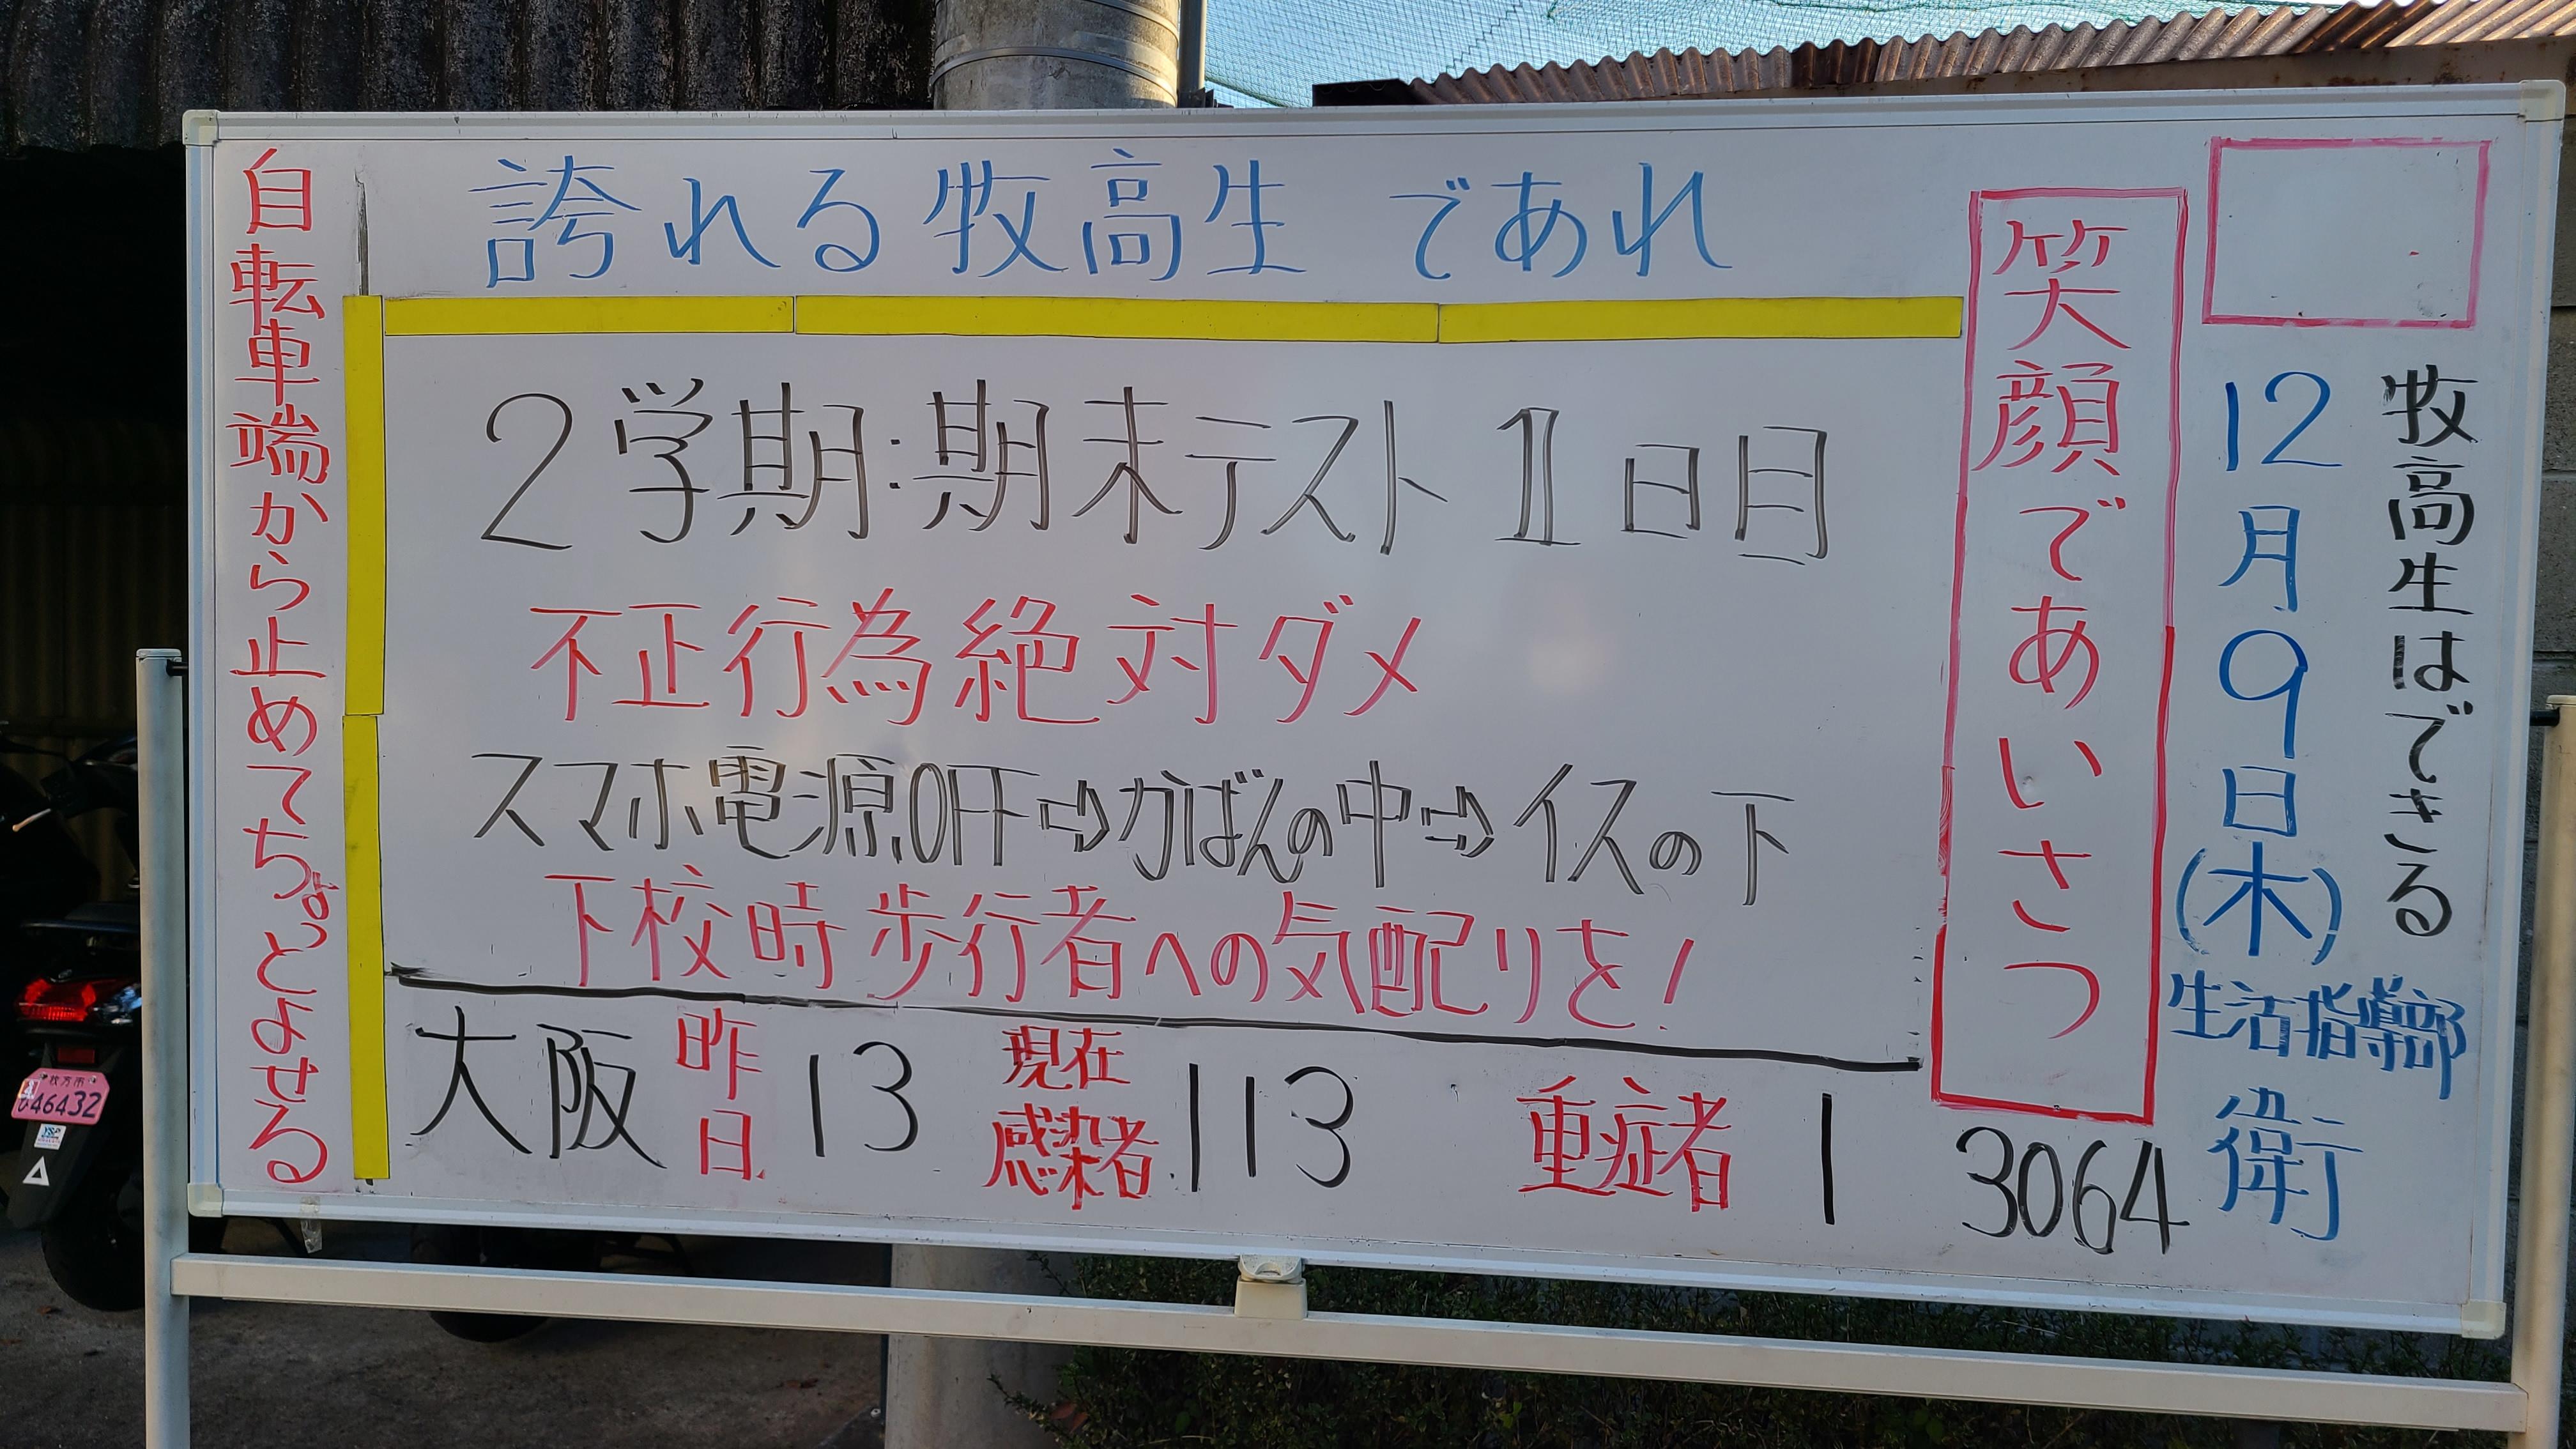 牧高生はできる
12月9日(木)
生活指導部
衛
笑顔であいさつ
誇れる牧高生であれ
2学期:期末テスト1日目
不正行為絶対ダメ
スマホ電源OFF⇨かばんの中⇨イスの下
下校時歩行者への気配りを!
大阪 昨日 13 現在感染者 113 重症者 1 3064
自転車端から止めてちょっとよせる
枚方市
ひ 46432
YSP